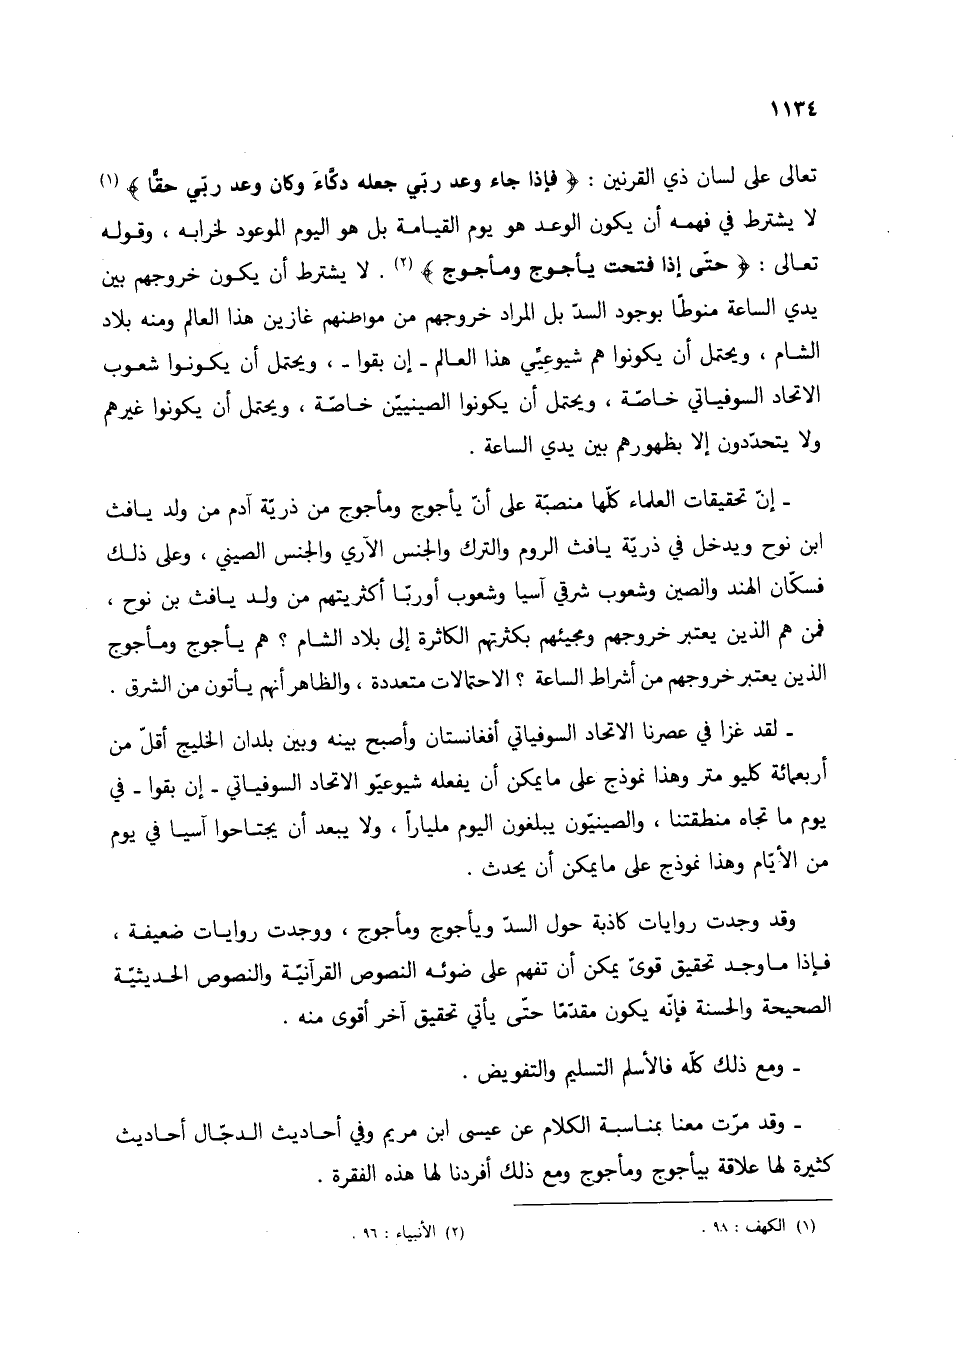 ١١٣٤
تعالى على لسان ذي القرنين : ﴿ فإذا جاء وعد ربّي جعله دكّاءَ وكان وعد ربّي حقّا ﴾ (١)
لا يشترط في فهمه أن يكون الوعد هو يوم القيامة بل هو اليوم الموعود لخرابه ، وقوله
تعالى : ﴿ حتّى إذا فتحت يأجوج ومأجوج ﴾ (٢) . لا يشترط أن يكون خروجهم بين
يدي الساعة منوطًا بوجود السدّ بل المراد خروجهم من مواطنهم غازين هذا العالم ومنه بلاد
الشام ، ويحتمل أن يكونوا هم شيوعيّي هذا العالم ـ إن بقوا ـ ، ويحتمل أن يكونوا شعوب
الاتحاد السوفياتي خاصّة ، ويحتمل أن يكونوا الصينيّين خاصّة ، ويحتمل أن يكونوا غيرهم
ولا يتحدّدون إلا بظهورهم بين يدي الساعة .
ـ إنّ تحقيقات العلماء كلّها منصبّة على أنّ يأجوج ومأجوج من ذريّة آدم من ولد يافث
ابن نوح ويدخل في ذريّة يافث الروم والترك والجنس الآري والجنس الصيني ، وعلى ذلك
فسكّان الهند والصين وشعوب شرقي آسيا وشعوب أوربّا أكثريتهم من ولد يافث بن نوح ،
فمن هم الذين يعتبر خروجهم ومجيئهم بكثرتهم الكاثرة إلى بلاد الشام ؟ هم يأجوج ومأجوج
الذين يعتبر خروجهم من أشراط الساعة ؟ الاحتمالات متعددة ، والظاهر أنهم يأتون من الشرق .
ـ لقد غزا في عصرنا الاتحاد السوفياتي أفغانستان وأصبح بينه وبين بلدان الخليج أقلّ من
أربعمائة كليو متر وهذا نموذج على مايمكن أن يفعله شيوعيّو الاتحاد السوفياتي ـ إن بقوا ـ في
يوم ما تجاه منطقتنا ، والصينيّون يبلغون اليوم ملياراً ، ولا يبعد أن يجتاحوا آسيا في يوم
من الأيّام وهذا نموذج على مايمكن أن يحدث .
وقد وجدت روايات كاذبة حول السدّ ويأجوج ومأجوج ، ووجدت روايات ضعيفة ،
فإذا ماوجد تحقيق قويّ يمكن أن تفهم على ضوئه النصوص القرآنيّة والنصوص الحديثيّة
الصحيحة والحسنة فإنّه يكون مقدّمًا حتّى يأتي تحقيق آخر أقوى منه .
ـ ومع ذلك كلّه فالأسلم التسليم والتفويض .
ـ وقد مرّت معنا بمناسبة الكلام عن عيسى ابن مريم وفي أحاديث الدجّال أحاديث
كثيرة لها علاقة بيأجوج ومأجوج ومع ذلك أفردنا لها هذه الفقرة .
(١) الكهف : ٩٨ . (٢) الأنبياء : ٩٦ .